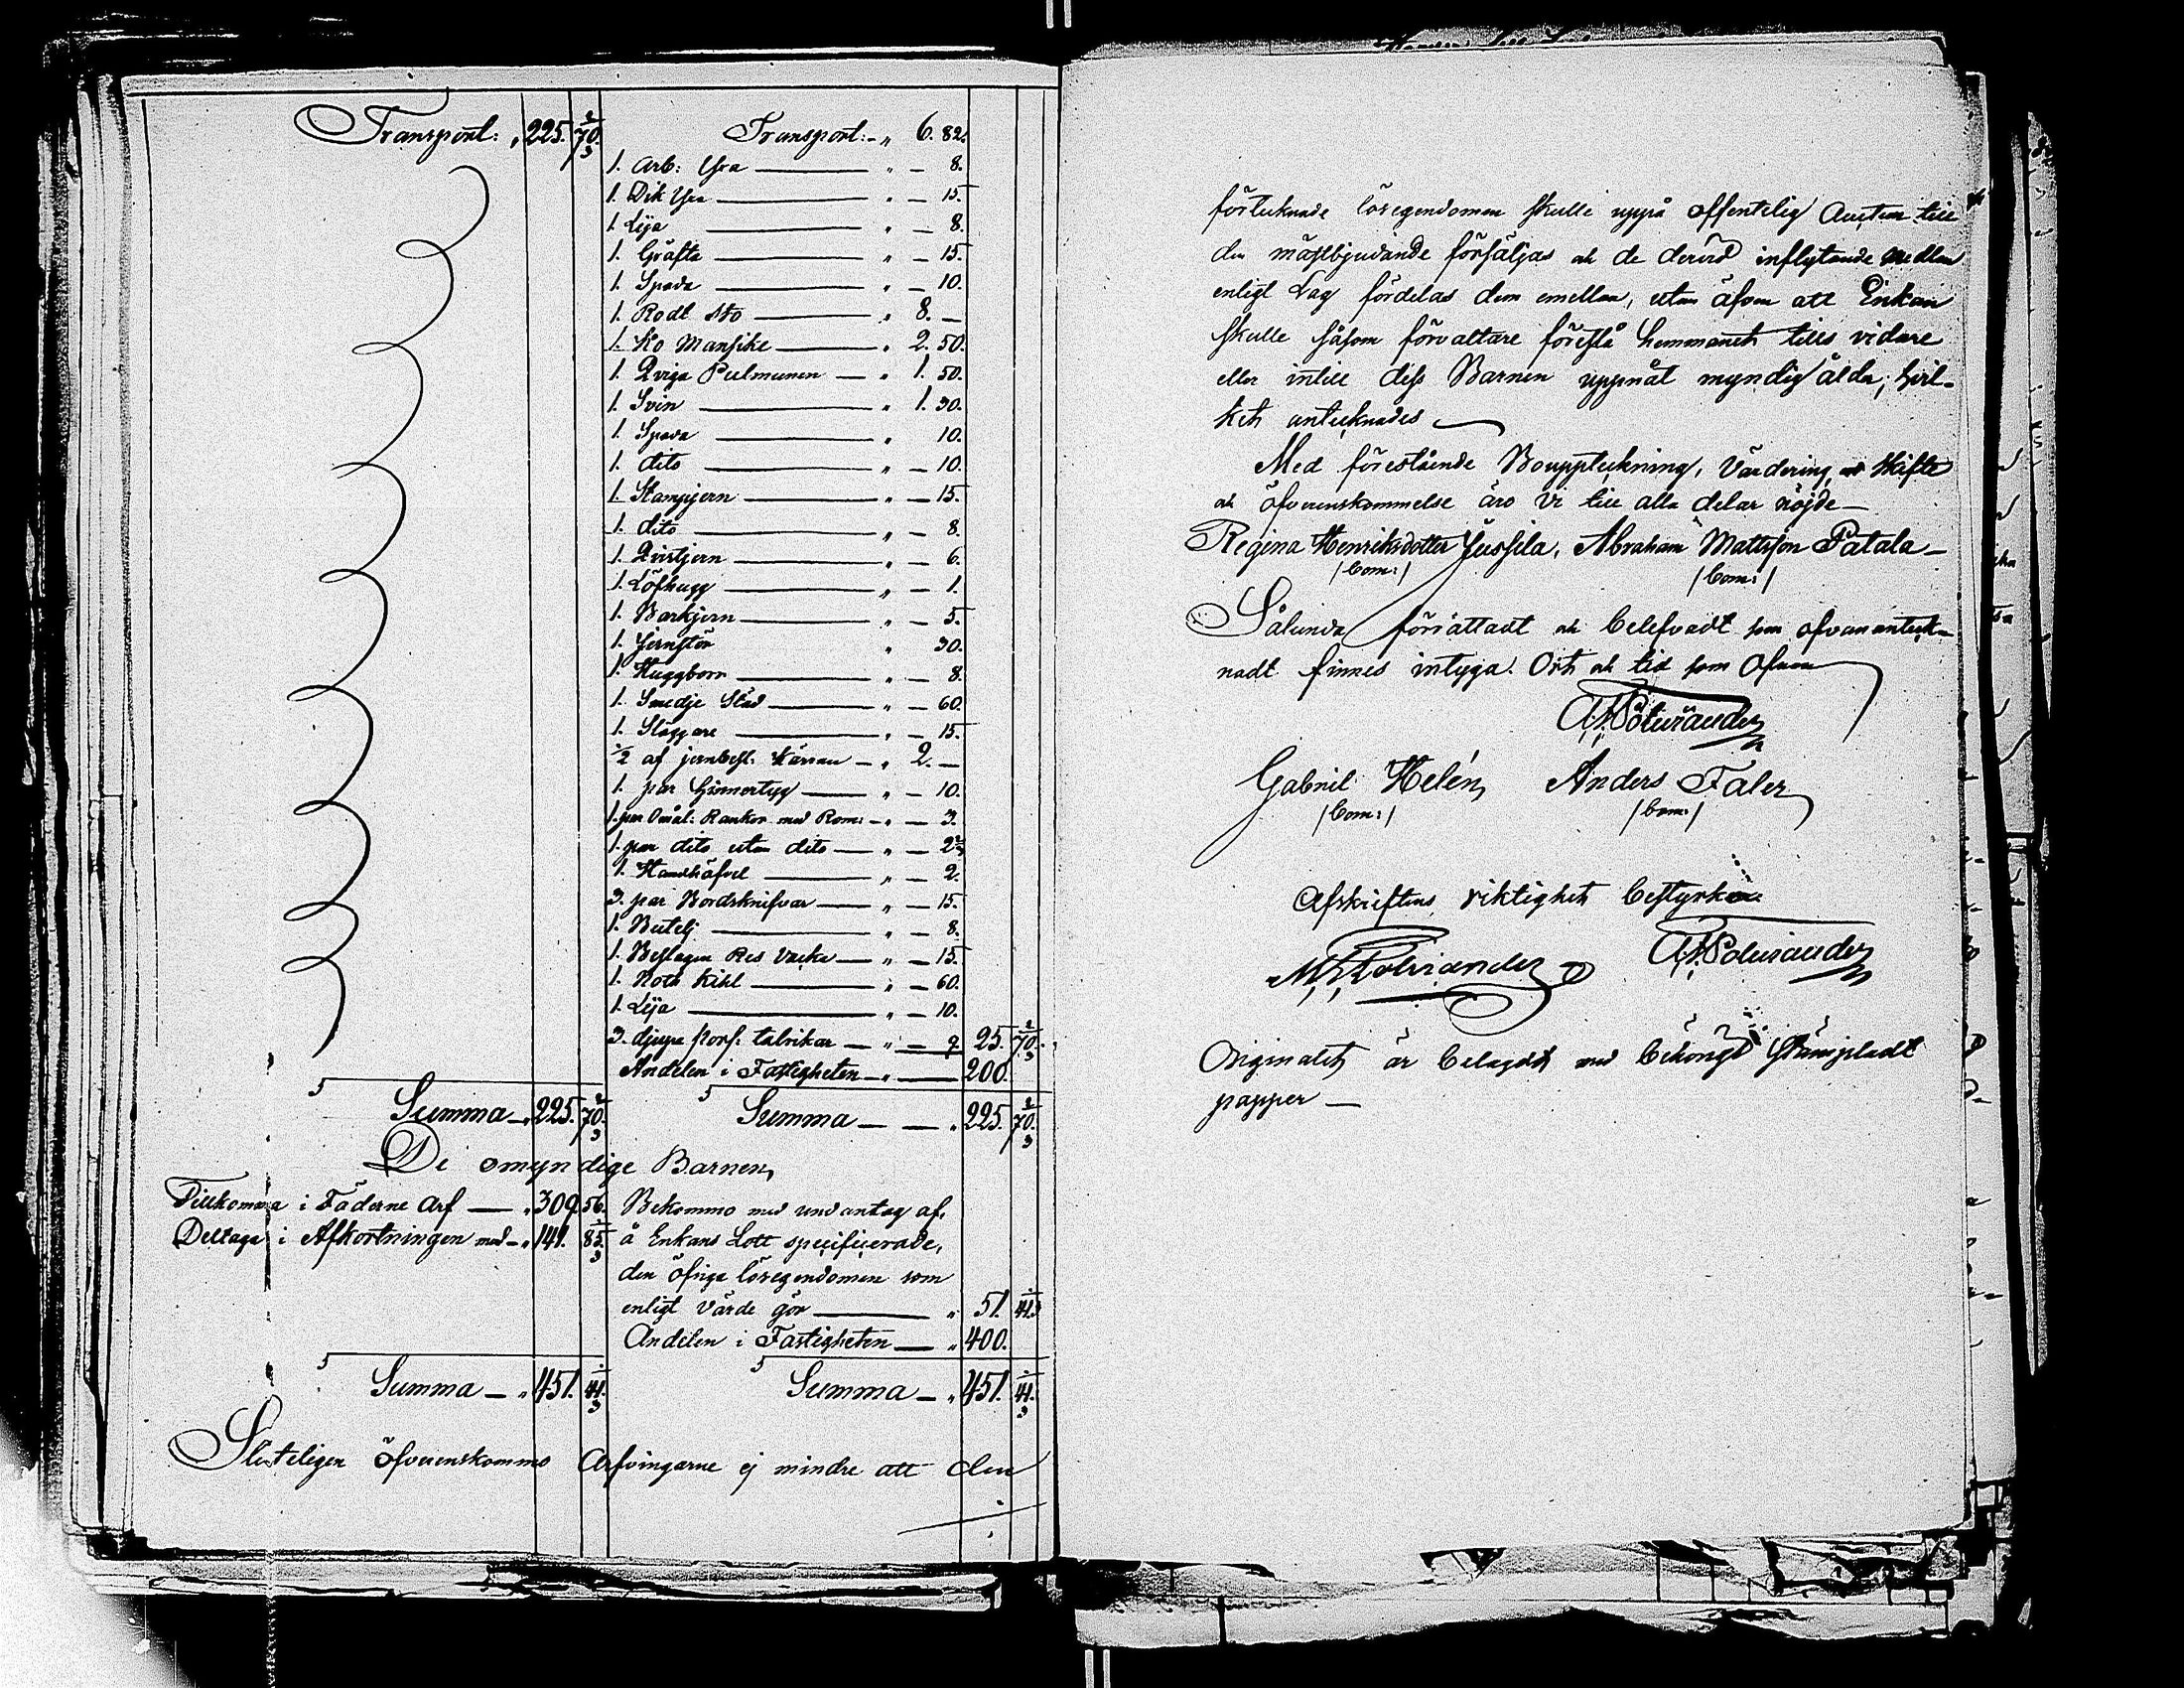 Transport: " 225. 70 2/3
Transport: - " 6. 82.
1. Arb: Yxa — " — 8.
1. Dik Yxa — " — 15.
1. Lija — " — 8.
1. Gräfta — " — 15.
1. Spada — " — 10.
1. Rodt Sto — " 8. —
1. Ko Mansike — " 2. 50.
1. Qviga Pulmunen — " 1. 50.
1. Svin — " 1. 30.
1. Spada — " 10.
1. dito — " — 10.
1. Stampjern — " — 15.
1. dito — " — 8.
1. Qvistjern — " — 6.
1. Löfhugg — " — 1.
1. Barkjern — " — 5.
1. Jernstör " 30.
1. Huggborr — " — 8.
1. Smedje Städ — " — 60.
1. Släggare — " — 15.
1/2 af jernbesl: Kärran — " 2. —
1. par Hinnertyg — " — 10.
1. par Omål: Rankor med Rom: — " — 3.
1. par dito utan dito — " — 2 2/3
1. Handhäfvel — " — 2.
3. par Bordsknifvar — " — 15.
1. Butelj — " — 8.
1. Beslagen Res Vacka — " — 15.
1. Noth Kihl — " — 60.
1. Lija — " — 10.
3. djupa Porsl: talrikar — " — 9. 25. 70 2/3
Andelen i Fastigheten — " — 200.
Summa — " 225. 70 2/3
Summa — — " 225. 70 2/3
De omyndige Barnen,
Tillkomma i Fäderne Arf — " 309. 56.
Deltaga i Afkortningen med — " 141. 85 1/3
Bekommo med undantag af,
å Enkans Lott specificerade,
den öfriga lösegendomen som
enligt värde gör — " 51. 41 1/3
Andelen i Fastigheten — " 400.
Summa — " 451. 41 1/3
Summa — " 451. 41 1/3
Sluteligen öfverenskommo Arfvingarne ej mindre att den
förtecknade lösegendomen skulle uppå offentelig Auction till
den mästbjudande försäljas och de dervid inflytande medlen
enligt Lag fördelas dem emellan, utan äfven att Enkan
skulle såsom förvaltare förestå hemmanet tills vidare
eller intill dess Barnen uppnåt myndig ålder; hvil-
ket antecknades —
Med förestående Bouppteckning, Värdering, Skifte
och öfverenskommelse äro vi till alla delar nöjde —
Regina Henriksdotter Jussila, Abraham Mattsson Patala —
/bom:/ /bom:/
Sålunda förrättadt och belefvadt som ofvan anteck-
nadt finnes intyga. Ort och tid som Ofvan
A. Polviander
Gabriel Helén, Anders Faler,
/bom:/ /bom:/
Afskriftens riktighet bestyrka
M. Polviander A. Polviander
Originalet är belagdt med behörigt Stämpladt
papper —